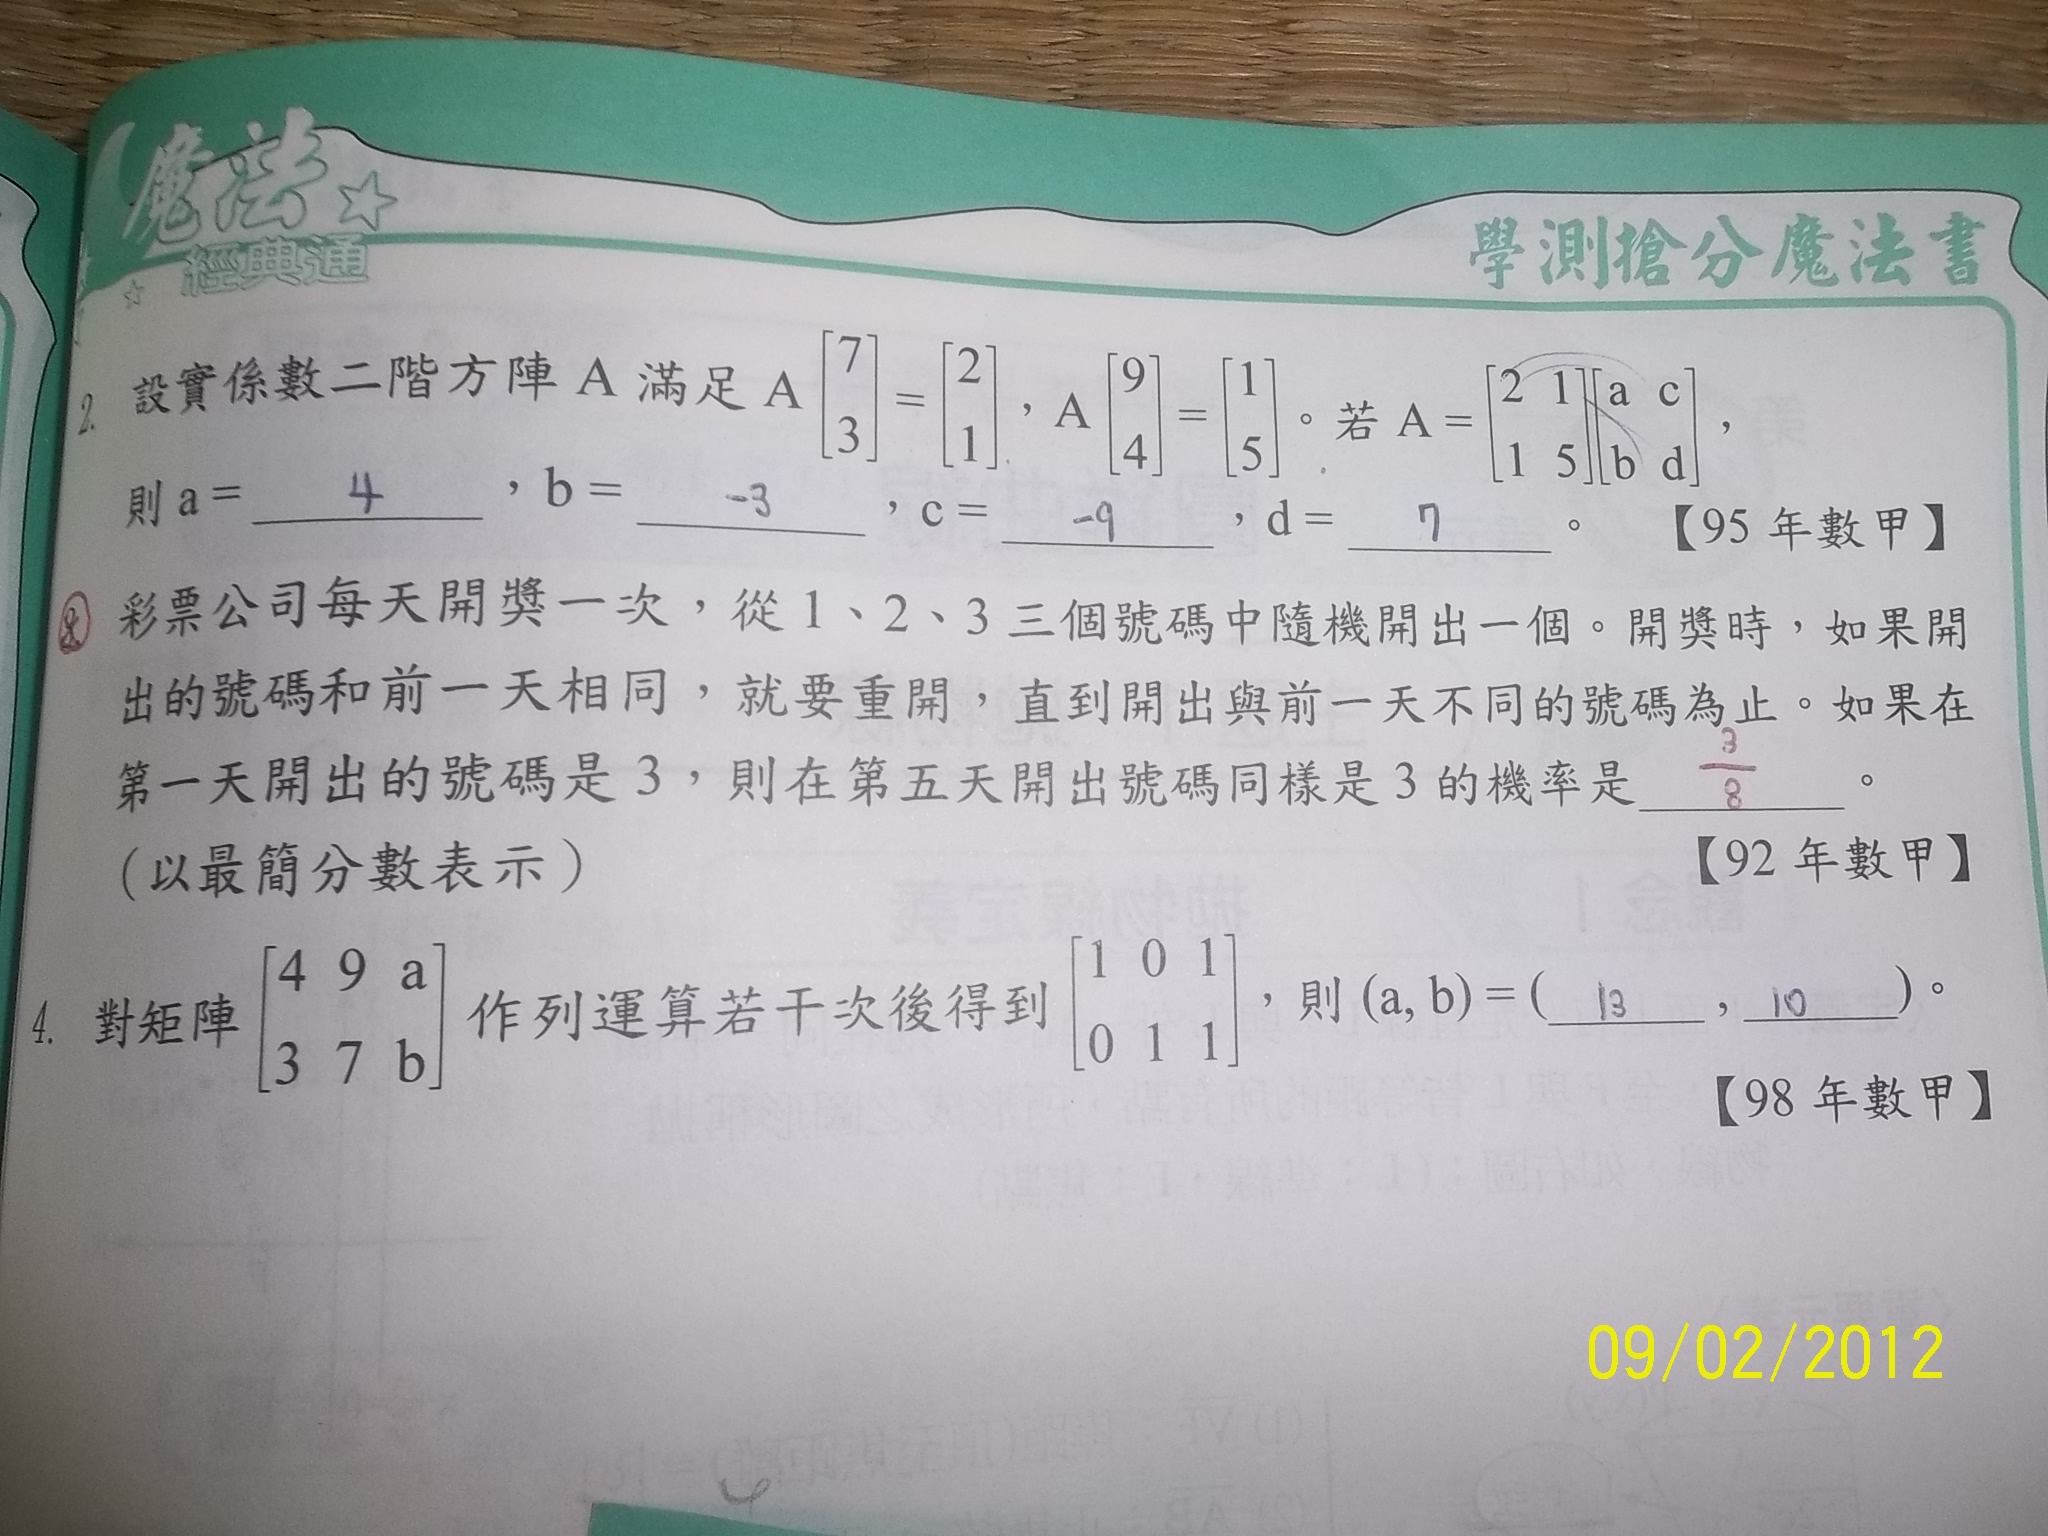 魔法
經典通
學測搶分魔法書
2. 設實係數二階方陣 A 滿足 A [7 3] = [2 1],A [9 4] = [1 5]。若 A = [2 1 1 5][a c b d],
則 a = 4,b = -3,c = -9,d = 7。 【95 年數甲】
彩票公司每天開獎一次,從 1、2、3 三個號碼中隨機開出一個。開獎時,如果開
出的號碼和前一天相同,就要重開,直到開出與前一天不同的號碼為止。如果在
第一天開出的號碼是 3,則在第五天開出號碼同樣是 3 的機率是 3/8。
(以最簡分數表示) 【92 年數甲】
4. 對矩陣 [4 9 a 3 7 b] 作列運算若干次後得到 [1 0 1 0 1 1],則 (a, b) = ( 13 , 10 )。
【98 年數甲】
09/02/2012